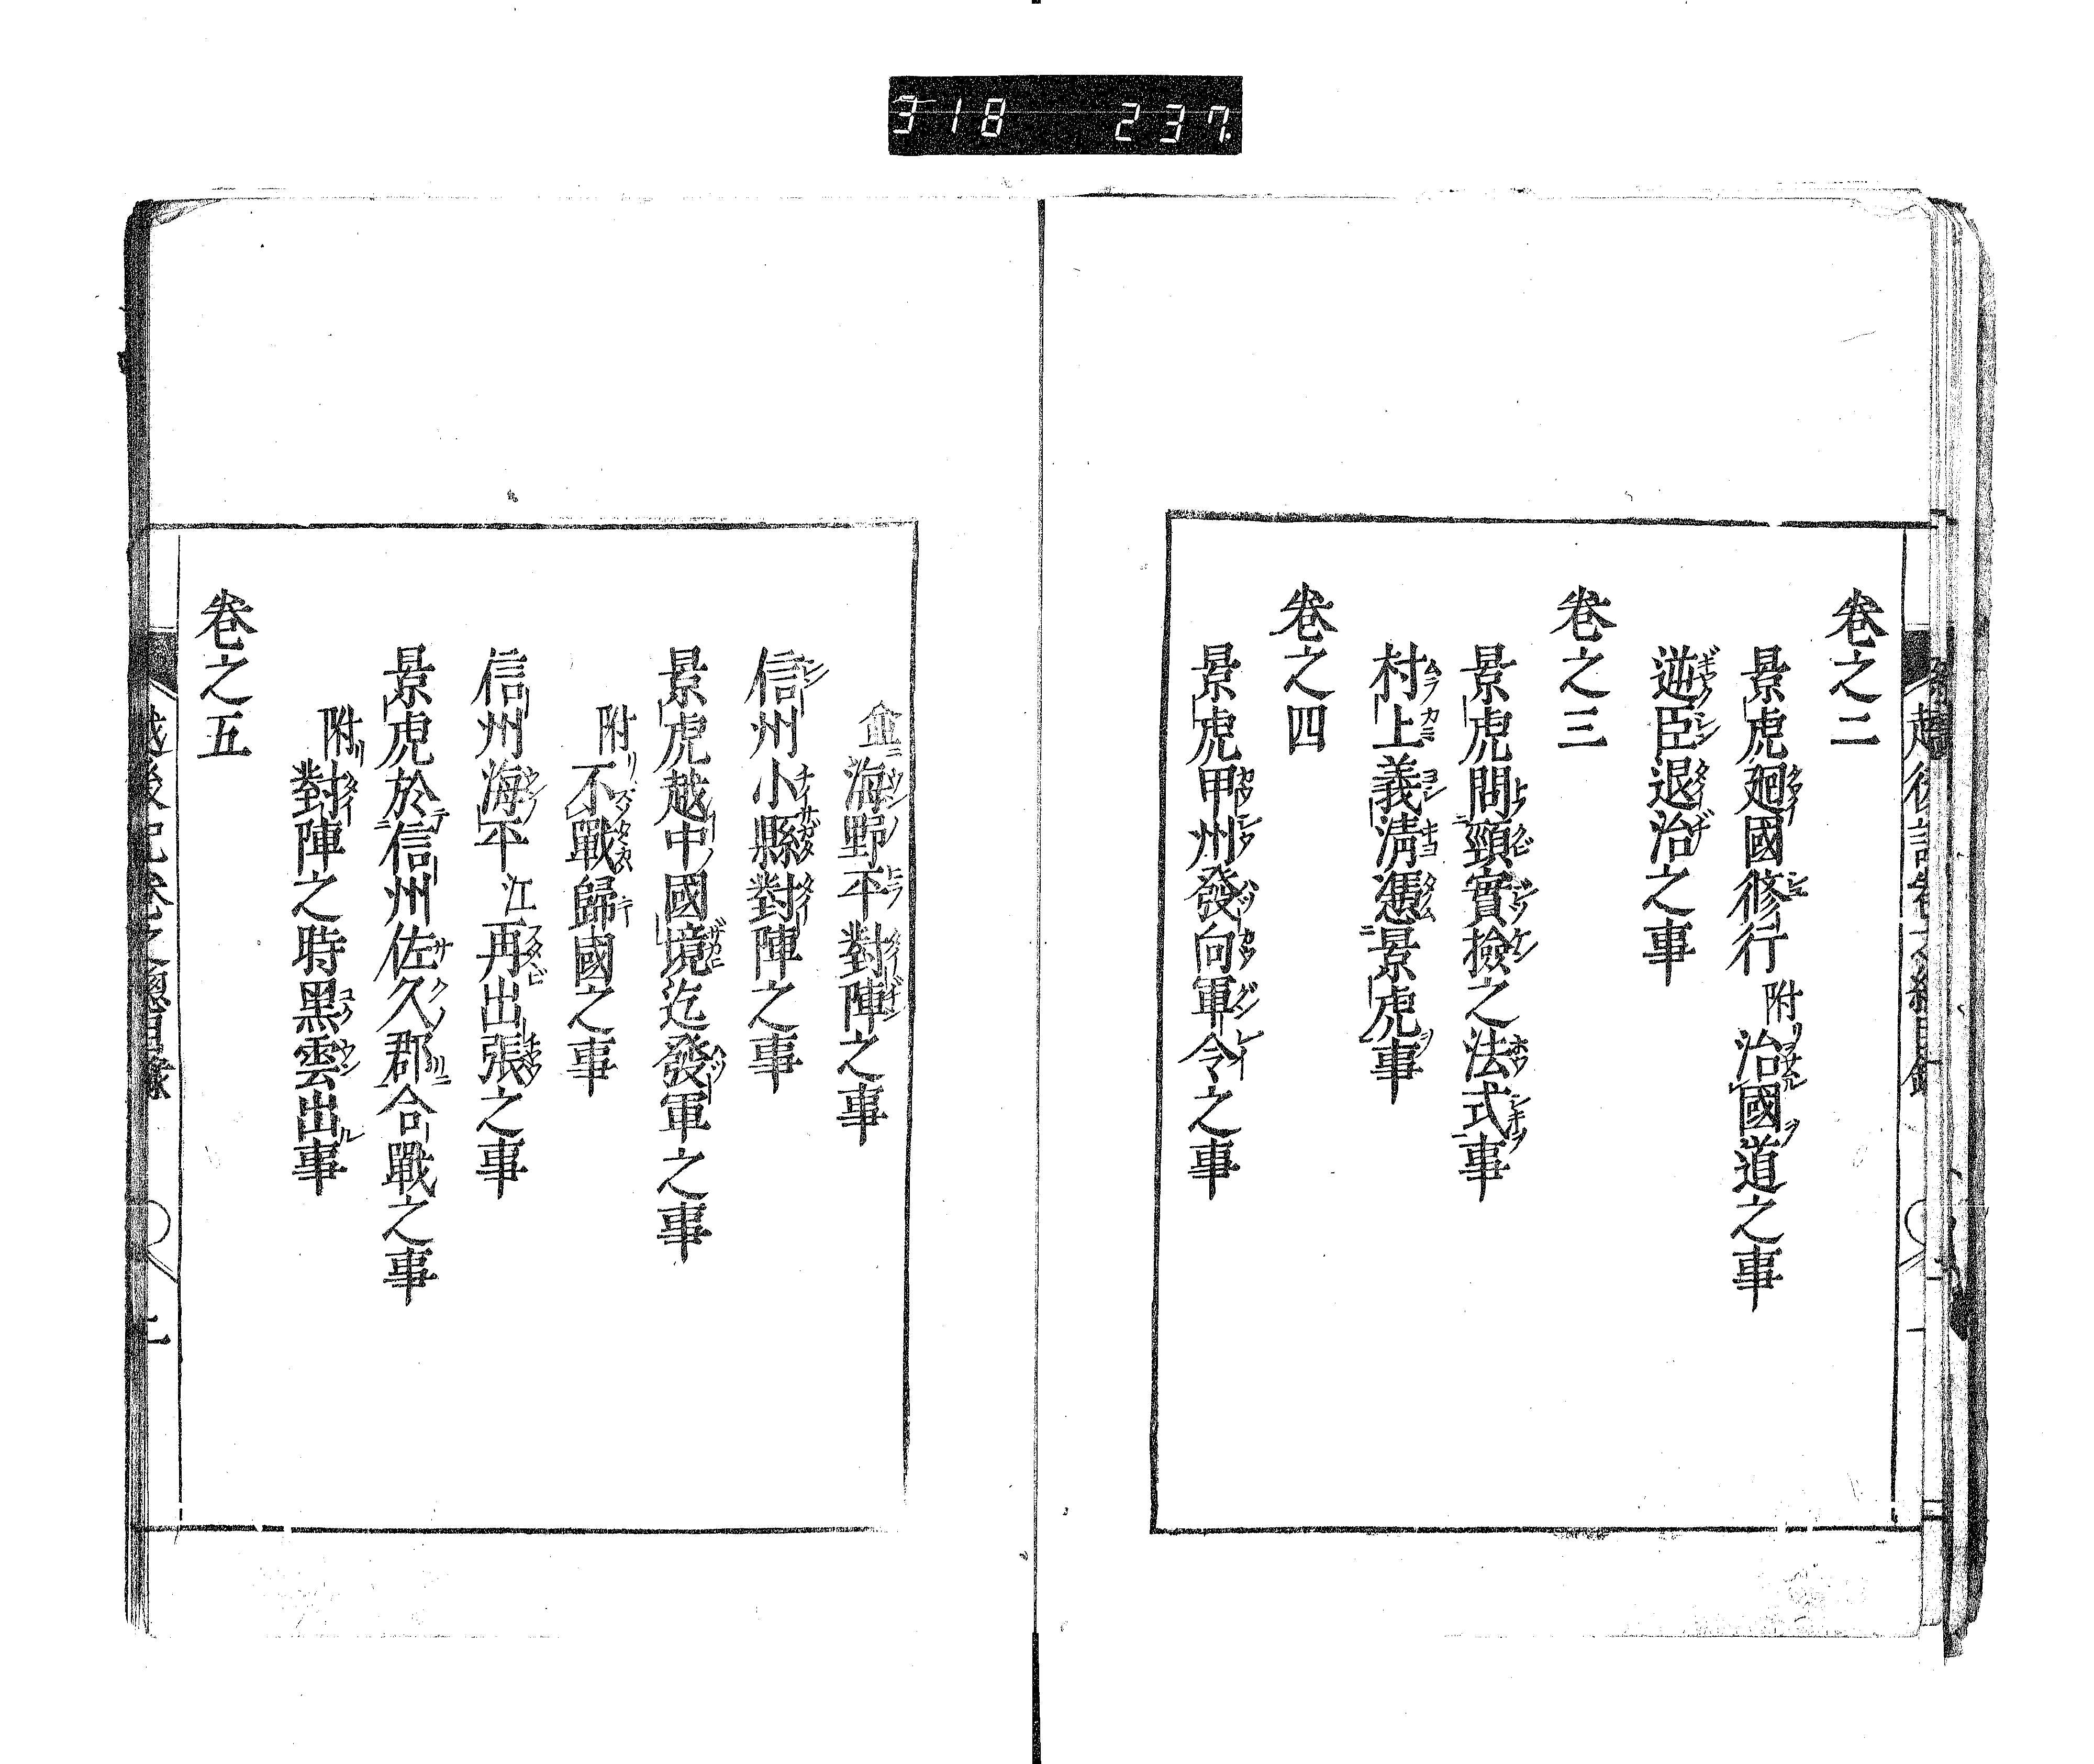 318 237
巻之二
景虎廻國修行 附 治國道之事
逆臣退治之事
巻之三
景虎問頸實撿之法式事
村上義淸憑景虎事
巻之四
景虎甲州發向軍令之事
並海野平對陣之事
信州小縣對陣之事
景虎越中國境迄發軍之事
附不戰歸國之事
信州海平江再出張之事
景虎於信州佐久郡合戰之事
附對陣之時黑雲出事
巻之五
越後記巻之總目錄
二